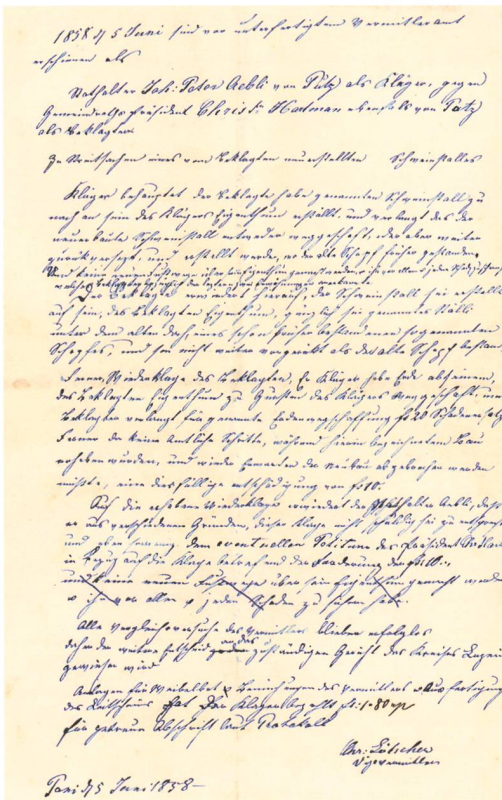 1858 d/ 5 Juni sind vor unterfertigtem Vermitleramt
erschienen als
Stathalter Joh: Peter Aebli von Putz als Kläger, gegen
Gemeindsspräsident Christ: Hartman ebenfals von Putz
als Beklagten
In Streitsachen eines vom Beklagten neuerstellten Schweinstalles
Kläger behauptet der Beklagte habe genannten Schweinstall zu
nach an sein des Klägers Eigenthum erstellt, und verlangt das der
neuerbaute Schweinstall entweder weggeschaft, der aber weiter
zurückgesezt, und erstellt werde, wo der alte Schopf früher gestanden.
Und keine neuen Fusswege über sein Eigenthum gemacht werden,
Der Beklagte erwiedert hierauf, der Schweinstall sei erstellt
auf sein, des Beklagten Eigenthum, sei genanntes Ställi
unter dem alten dach, eines schon früher bestandenen sogenannten
Schopfes, und sei nicht weiter vorgerükt als der alte Schopf bestand,
Ferner, Wiederklage des Beklagten, Er Kläger habe Erde ab seinem,
des Beklagten Eigenthum zu Gunsten des Klägers weggeschaft, und
Beklagter verlangt für genannte Erdenwegschaffung fr 20 Schadenersatz
Ferner da keine Amtliche Schritte, während hierin bezeichnetem Bau
erhoben wurden, und wieder Erwarten der Neubau abgebrochen werden
müste, eine diesfällige entschädigung von fr 10.
Auf die erhobene Wiederklage erwiedert der Stathalter Aebli, dass
er aus verschiedenen Gründen, dieser Klage nicht schuldig sei zu entsprechen
und eben so wenig dem eventuellen Petitum des Präsident Hartman
in Bezug auf die Klage betrefend der Forderung der
und keine neuen Fusswege über sein Eigenthum gemacht werden
u ihn vor allem u jedem Schaden zu sichern hab.
Alle Vergleichsversuche des Vermitlers blieben erfolglos
daher der weitere Entscheid an das zuständigen Gericht des Kreises Luzein
gewiesen wird
Anlagen für Weibelbot & Bemühungen des Vermitlers u Ausfertigung
des Leitscheins hat der Kläger bezahlt fr: 1.80 rp
für getreue Abschrift laut Protokoll
Chr: Lötscher
Vizevermitler
Pani d/5 Juni 1858 –